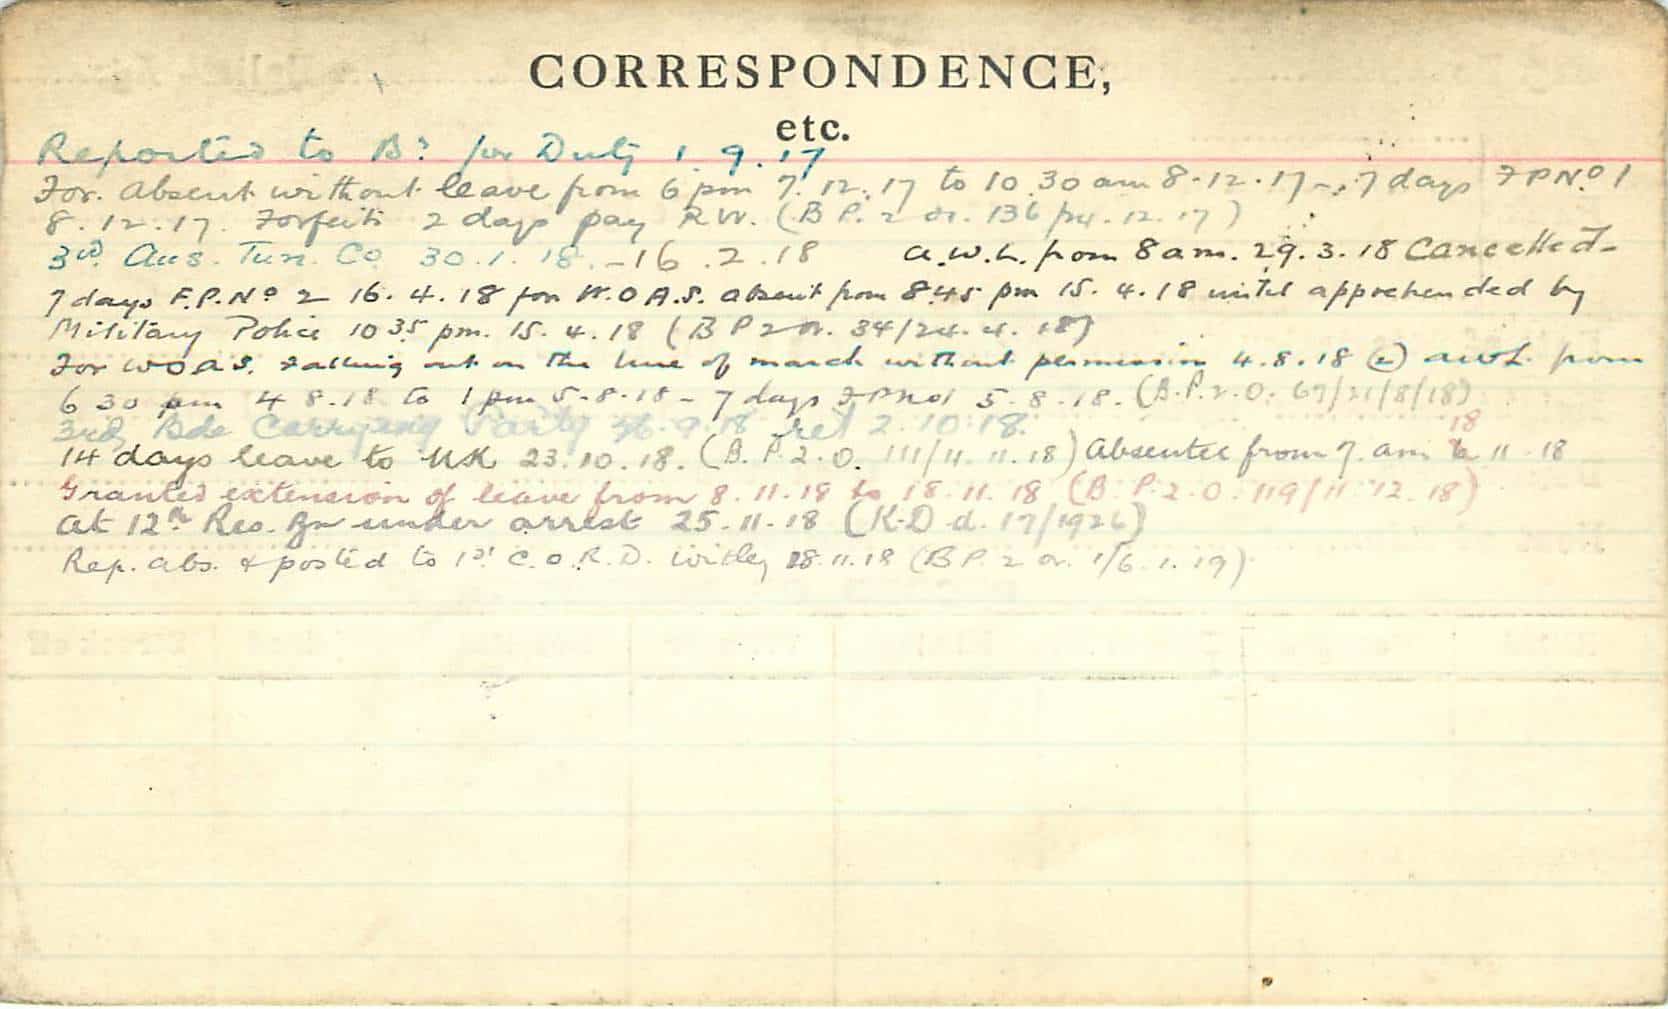 CORRESPONDENCE,
etc.
Reported to Bn for Duty 1. 9. 17
For. Absent without leave from 6 pm 7. 12. 17 to 10 30 am 8-12-17 - 7 days FP No 1
8. 12. 17. Forfeits 2 days pay R.W. (B P. 2 or. 136 12. 17)
3rd Aus. Tun. Co 30. 1. 18. - 16. 2. 18 a.w.L. from 8 am. 29. 3. 18 Cancelled -
7 days F.P. No 2 16. 4. 18 for W.O.A.S. absent from 8 45 pm 15. 4. 18 until apprehended by
Military Police 10 35 pm. 15. 4. 18 (B P 2 or. 34/24. 4. 18)
For W O A S. Falling out on the line of march without permission 4. 8. 18 (2) awL. from
6 30 pm 4 8. 18 to 1 pm 5-8-18 - 7 days FP No 1 5. 8. 18. (B.P. 2. O. 67/21/8/18)
3rd Bde Carrying Party 9. 18 ret 2. 10. 18.
14 days leave to UK 23. 10. 18. (B. P. 2. O. 111/11. 11. 18) Absentee from 7. am 11 - 18
18
Granted extension of leave from 8. 11. 18 to 18. 11. 18 (B. P. 2. O. 119/11. 12. 18)
at 12th Res. Bn under arrest 25. 11. 18 (K.D d. 17/1926)
Rep. abs. & posted to 1st C. O. R. D. Witley 28. 11. 18 (B P. 2 or. 1/6. 1. 19)